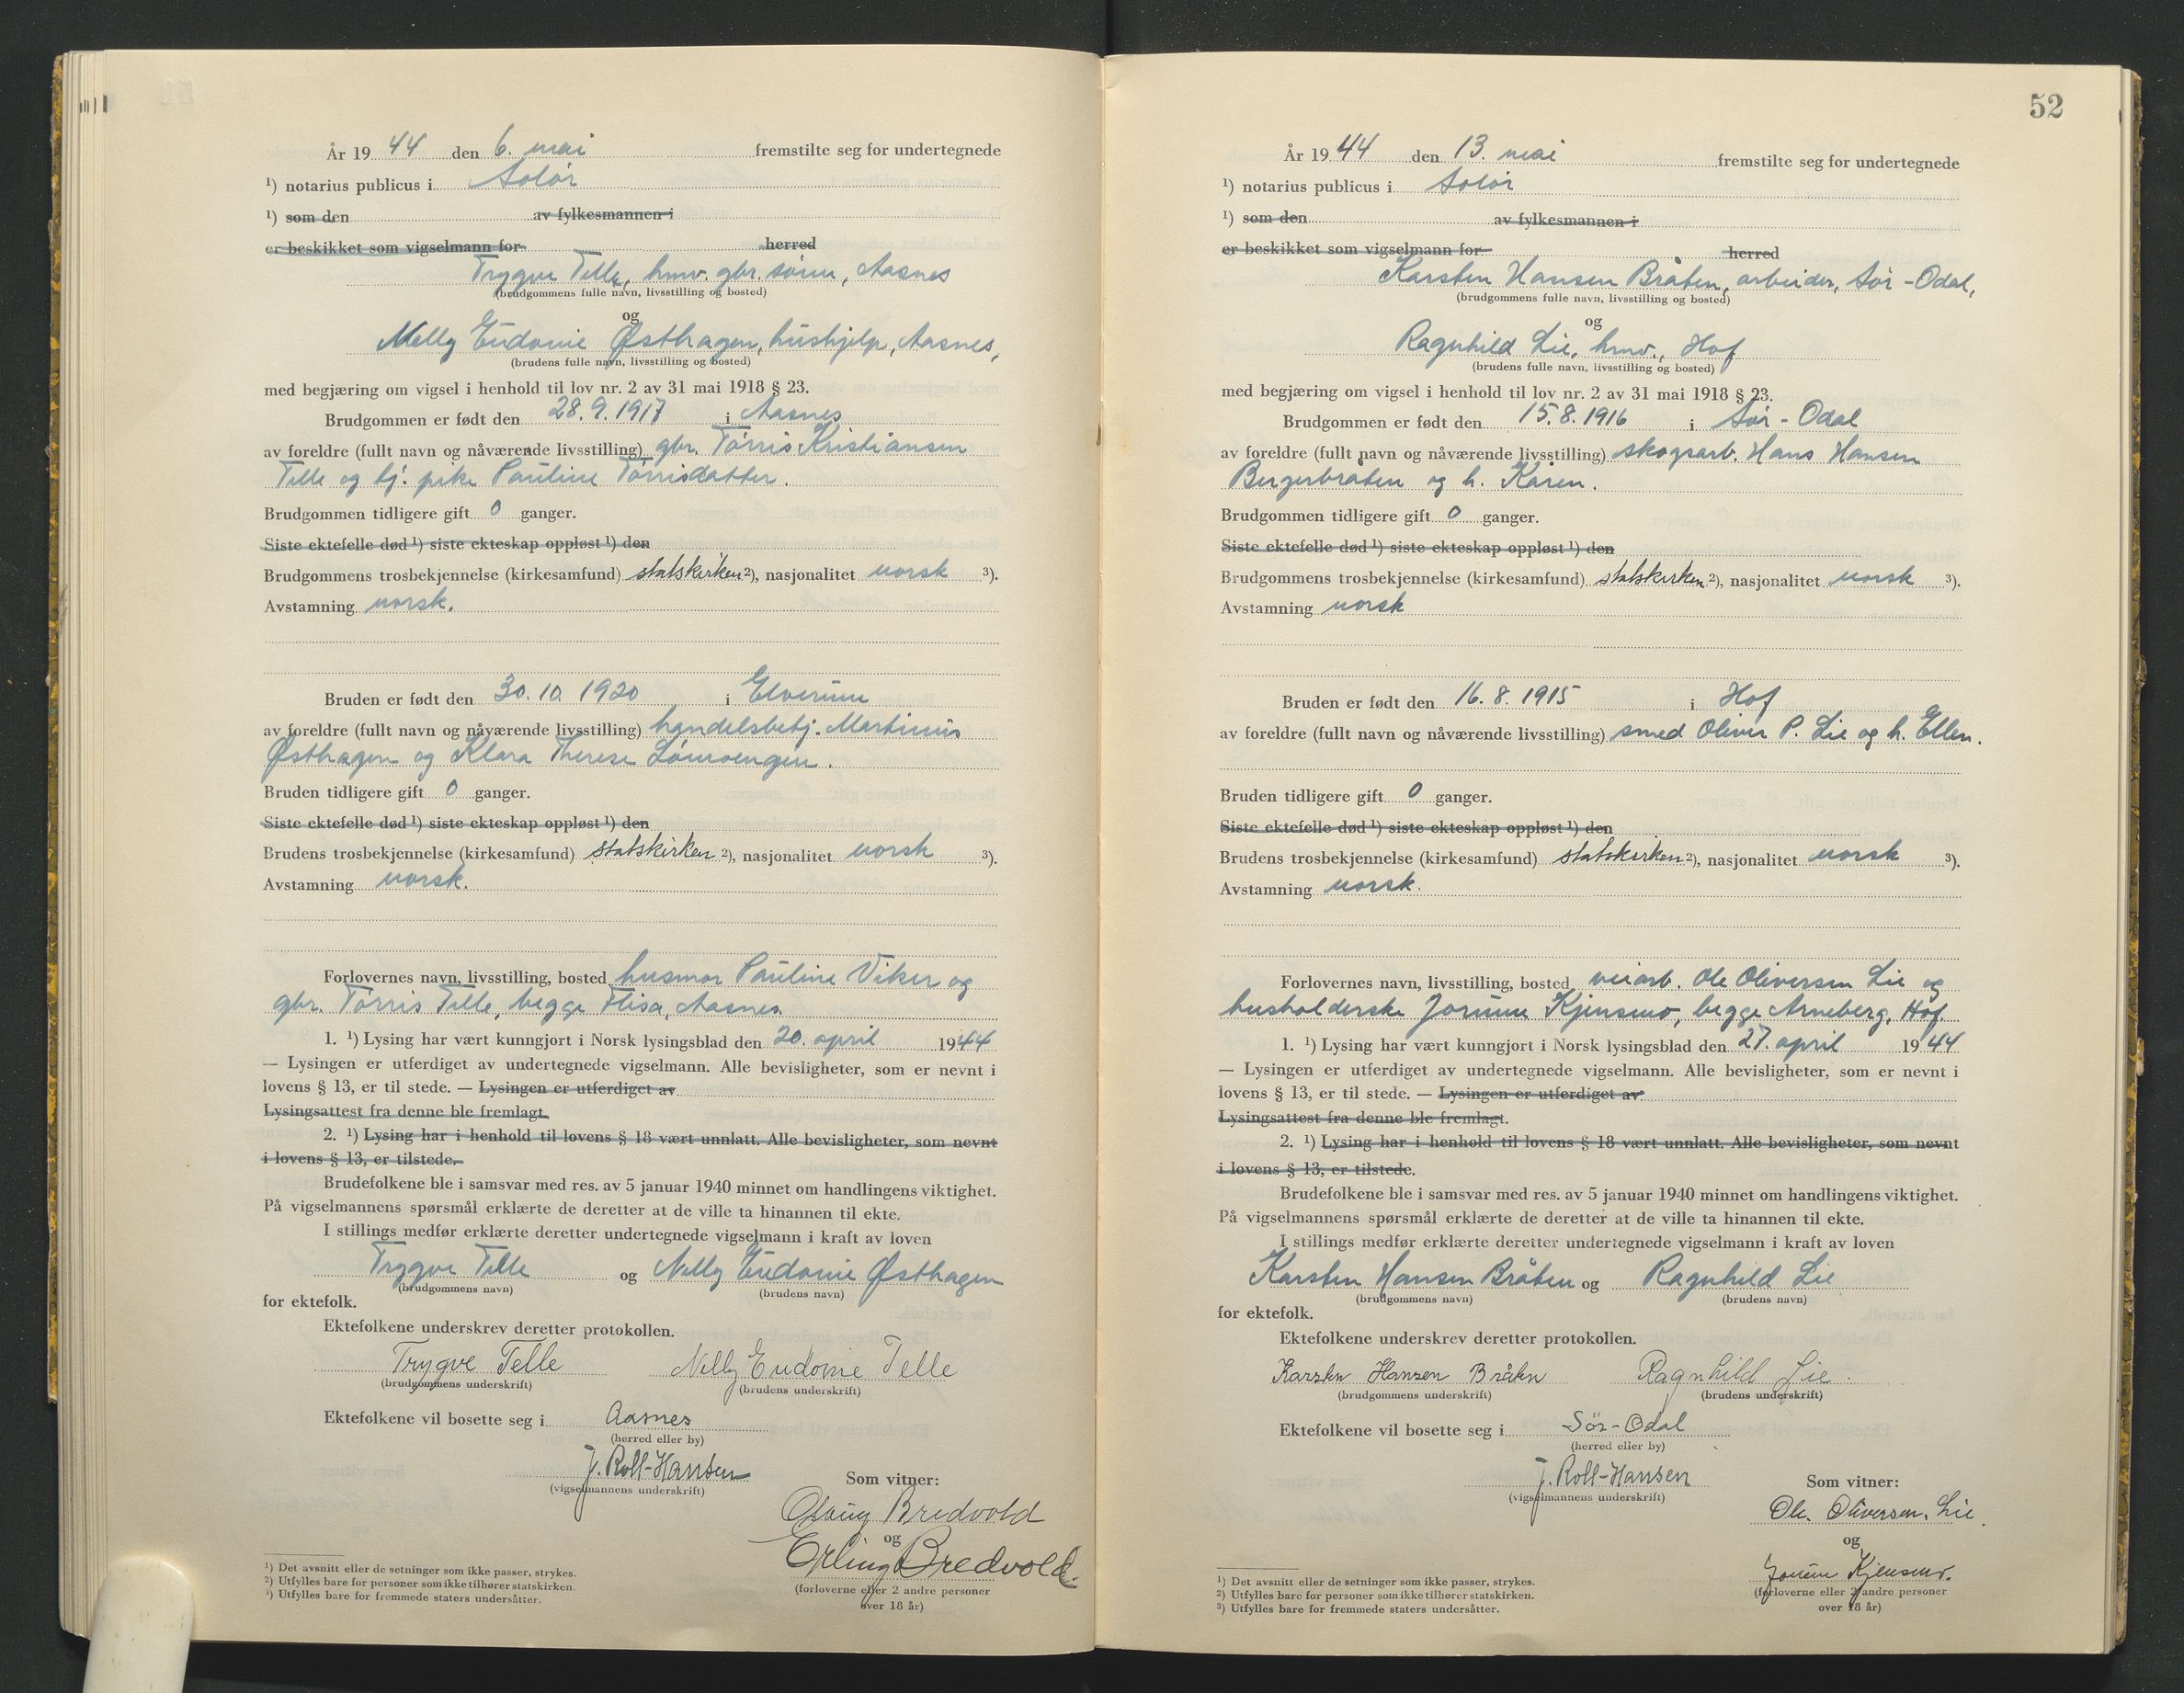 År 19 44 den 6. mai fremstilte seg for undertegnede
¹) notarius publicus i Solør
¹) som den av fylkesmannen i
er beskikket som vigselmann for herred
Trygve Telle, hmv. gbr. sønn, Aasnes
(brudgommens fulle navn, livsstilling og bosted)
og
Nelly Eudonie Østhagen, hushjelp, Aasnes,
(brudens fulle navn, livsstilling og bosted)
med begjæring om vigsel i henhold til lov nr. 2 av 31 mai 1918 § 23.
Brudgommen er født den 28.9.1917 i Aasnes
av foreldre (fullt navn og nåværende livsstilling) gbr. Tørris Kristiansen
Telle og pike Pauline Tørrisdatter.
Brudgommen tidligere gift 0 ganger.
Siste ektefelle død ¹) siste ekteskap oppløst ¹) den
Brudgommens trosbekjennelse (kirkesamfund) statskirken ²), nasjonalitet norsk ³).
Avstamning norsk.
Bruden er født den 30.10.1920 i Elverum
av foreldre (fullt navn og nåværende livsstilling) handelsbetj. Martinus
Østhagen og Klara Therese
Bruden tidligere gift 0 ganger.
Siste ektefelle død ¹) siste ekteskap oppløst ¹) den
Brudens trosbekjennelse (kirkesamfund) statskirken ²), nasjonalitet norsk ³).
Avstamning norsk.
Forlovernes navn, livsstilling, bosted husmor Pauline Viker og
gbr. Tørris Telle, begge Flisa, Aasnes.
1. ¹) Lysing har vært kunngjort i Norsk lysingsblad den 20. april 1944
— Lysingen er utferdiget av undertegnede vigselmann. Alle bevisligheter, som er nevnt i
lovens § 13, er til stede. — Lysingen er utferdiget av
Lysingsattest fra denne ble fremlagt.
2. ¹) Lysing har i henhold til lovens § 18 vært unnlatt. Alle bevisligheter, som nevnt
i lovens § 13, er tilstede.
Brudefolkene ble i samsvar med res. av 5 januar 1940 minnet om handlingens viktighet.
På vigselmannens spørsmål erklærte de deretter at de ville ta hinannen til ekte.
I stillings medfør erklærte deretter undertegnede vigselmann i kraft av loven
Trygve Telle og Nelly Eudonie Østhagen
(brudgommens navn) (brudens navn)
for ektefolk.
Ektefolkene underskrev deretter protokollen.
Trygve Telle Nelly Eudonie Telle
(brudgommens underskrift) (brudens underskrift)
Ektefolkene vil bosette seg i Aasnes
(herred eller by)
J. Roll-Hansen
(vigselmannens underskrift)
Som vitner:
Bredvold
og
Erling Bredvold.
(forloverne eller 2 andre personer
over 18 år)
¹) Det avsnitt eller de setninger som ikke passer, strykes.
²) Utfylles bare for personer som ikke tilhører statskirken.
³) Utfylles bare for fremmede staters undersåtter.
52
År 19 44 den 13. mai fremstilte seg for undertegnede
¹) notarius publicus i Solør
¹) som den av fylkesmannen i
er beskikket som vigselmann for herred
Karsten Hansen Bråten, arbeider, Sør-Odal,
(brudgommens fulle navn, livsstilling og bosted)
og
Ragnhild Lie, hmv., Hof
(brudens fulle navn, livsstilling og bosted)
med begjæring om vigsel i henhold til lov nr. 2 av 31 mai 1918 § 23.
Brudgommen er født den 15.8.1916 i Sør-Odal
av foreldre (fullt navn og nåværende livsstilling) skogsarb. Hans Hansen
Bergerbråten og h. Karen.
Brudgommen tidligere gift 0 ganger.
Siste ektefelle død ¹) siste ekteskap oppløst ¹) den
Brudgommens trosbekjennelse (kirkesamfund) statskirken ²), nasjonalitet norsk ³).
Avstamning norsk
Bruden er født den 16.8.1915 i Hof
av foreldre (fullt navn og nåværende livsstilling) smed Oliver P. Lie og h. Ellen.
Bruden tidligere gift 0 ganger.
Siste ektefelle død ¹) siste ekteskap oppløst ¹) den
Brudens trosbekjennelse (kirkesamfund) statskirken ²), nasjonalitet norsk ³).
Avstamning norsk.
Forlovernes navn, livsstilling, bosted veiarb. Ole Oliversen Lie og
husholderske Jorunn Kjensmo, begge Arneberg, Hof.
1. ¹) Lysing har vært kunngjort i Norsk lysingsblad den 27. april 1944
— Lysingen er utferdiget av undertegnede vigselmann. Alle bevisligheter, som er nevnt i
lovens § 13, er til stede. — Lysingen er utferdiget av
Lysingsattest fra denne ble fremlagt.
2. ¹) Lysing har i henhold til lovens § 18 vært unnlatt. Alle bevisligheter, som nevnt
i lovens § 13, er tilstede.
Brudefolkene ble i samsvar med res. av 5 januar 1940 minnet om handlingens viktighet.
På vigselmannens spørsmål erklærte de deretter at de ville ta hinannen til ekte.
I stillings medfør erklærte deretter undertegnede vigselmann i kraft av loven
Karsten Hansen Bråten og Ragnhild Lie
(brudgommens navn) (brudens navn)
for ektefolk.
Ektefolkene underskrev deretter protokollen.
Karsten Hansen Bråten Ragnhild Lie.
(brudgommens underskrift) (brudens underskrift)
Ektefolkene vil bosette seg i Sör-Odal
(herred eller by)
J. Roll-Hansen
(vigselmannens underskrift)
Som vitner:
Ole. Oliversen. Lie.
og
Jorunn Kjensmo.
(forloverne eller 2 andre personer
over 18 år)
¹) Det avsnitt eller de setninger som ikke passer, strykes.
²) Utfylles bare for personer som ikke tilhører statskirken.
³) Utfylles bare for fremmede staters undersåtter.